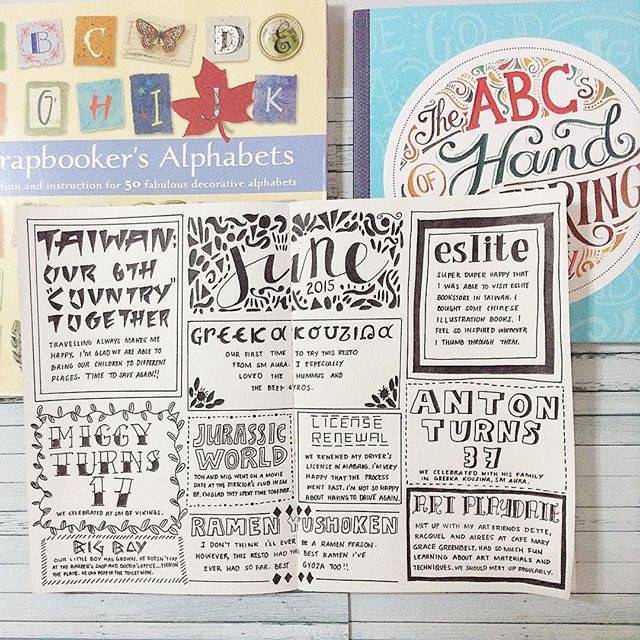 B C D E
G H I J K
rapbooker's Alphabets
tion and instruction for 50 fabulous decorative alphabets
The ABC's
OF Hand
ERING
TAIWAN:
OUR 6TH
"COUNTRY"
TOGETHER
TRAVELLING ALWAYS MAKES ME
HAPPY. I'M GLAD WE ARE ABLE TO
BRING OUR CHILDREN TO DIFFERENT
PLACES. TIME TO SAVE AGAIN!!
MIGGY
TURNS
17
WE CELEBRATED AT SM BF VIKINGS.
BIG BOY
OUR LITTLE BOY HAS GROWN. HE DOESN'T CRY
AT THE BARBER'S SHOP AND DOCTOR'S OFFICE...
THE PLACE. HE CAN POOP IN THE TOILET NOW.
June
2015
GREEKA KOUZINA
OUR FIRST TIME TO TRY THIS RESTO
FROM SM AURA. I ESPECIALLY
LOVED THE HUMMUS AND
THE BEEF GYROS.
JURASSIC
WORLD
TON AND MIG WENT ON A MOVIE
DATE AT THE DIRECTOR'S CLUB IN SM
BF. I'M GLAD THEY SPENT TIME TOGETHER.
LICENSE
RENEWAL
WE RENEWED MY DRIVER'S
LICENSE IN ALABANG. I'M VERY
HAPPY THAT THE PROCESS
WENT FAST. I'M NOT SO HAPPY
ABOUT HAVING TO DRIVE AGAIN.
RAMEN YUSHOKEN
I DON'T THINK I'LL EVER BE A RAMEN PERSON.
HOWEVER, THIS RESTO HAD THE BEST RAMEN I'VE
EVER HAD SO FAR. BEST GYOZA TOO!!
eslite
SUPER DUPER HAPPY THAT
I WAS ABLE TO VISIT ESLITE
BOOKSTORE IN TAIWAN. I
BOUGHT SOME CHINESE
ILLUSTRATION BOOKS. I
FEEL SO INSPIRED WHENEVER
I THUMB THROUGH THEM.
ANTON
TURNS
37
WE CELEBRATED WITH HIS FAMILY
IN GREEKA KOUZINA, SM AURA.
ART PLAYDATE
MET UP WITH MY ART FRIENDS DETTE,
RACQUEL AND AIREES AT CAFE MARY
GRACE GREENBELT. HAD SO MUCH FUN
LEARNING ABOUT ART MATERIALS AND
TECHNIQUES. WE SHOULD MEET UP REGULARLY.